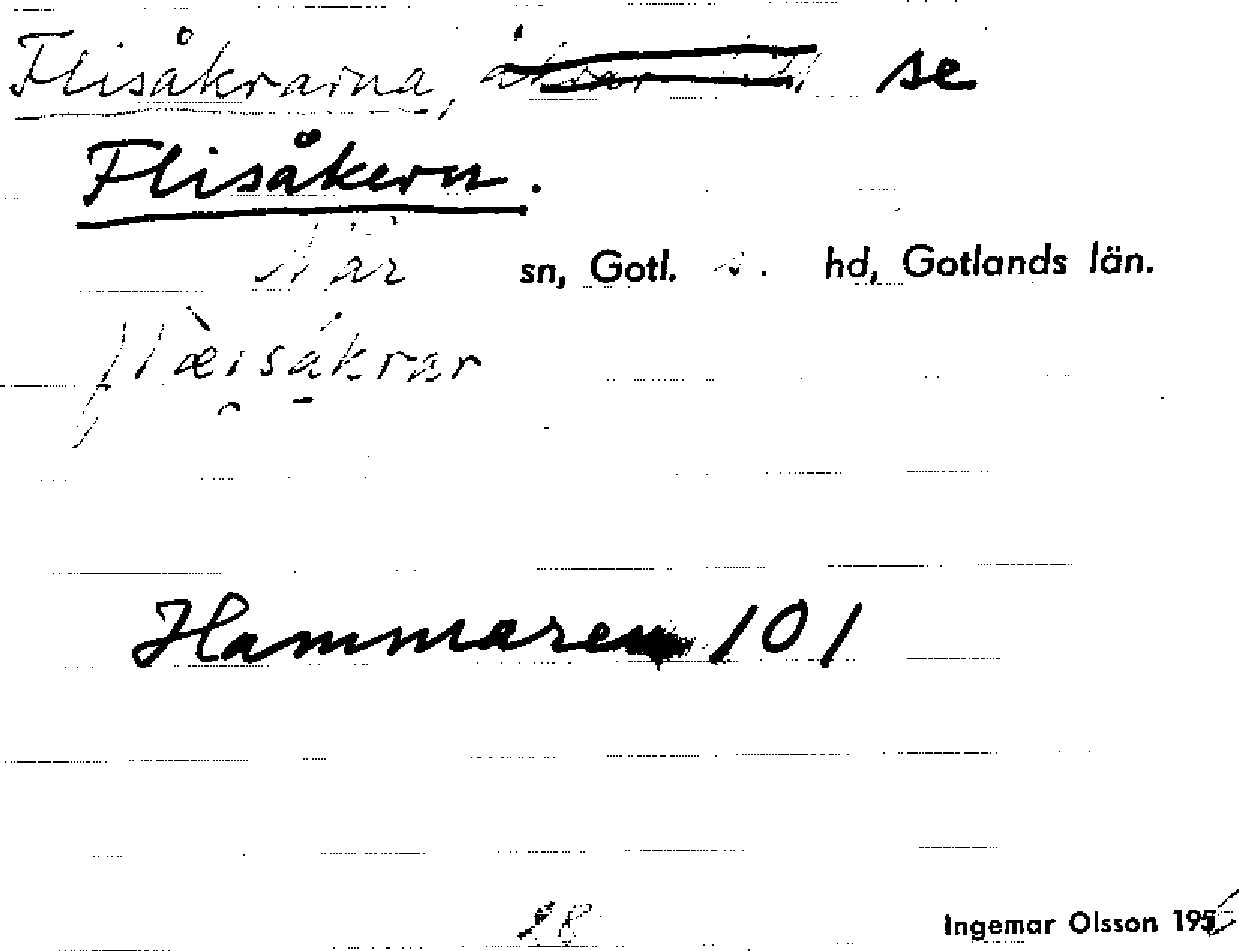 Flisåkrarna, se
Flisåkern.
När sn, Gotl. s. hd, Gotlands län.
flæ̀i̯så̄krar
Hammaren 101
28
Ingemar Olsson 1956